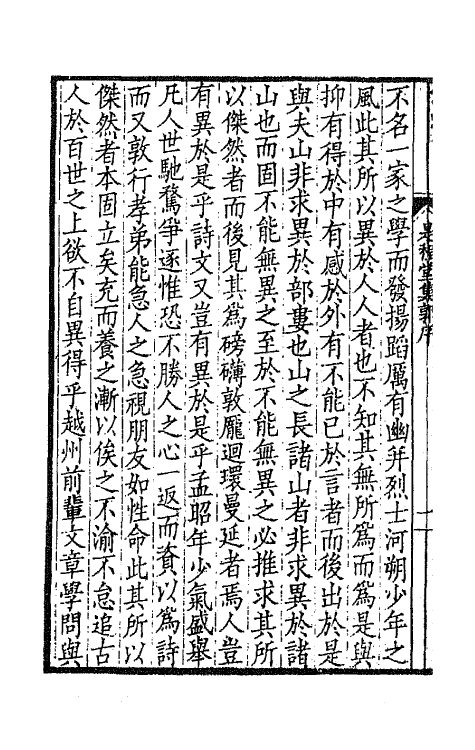 不名一家之學而發揚蹈厲有幽并烈士河朔少年之
風此其所以異於人人者也不知其無所爲而爲是與
抑有得於中有感於外有不能已於言者而後出於是
與夫山非求異於部婁也山之長諸山者非求異於諸
山也而固不能無異之至於不能無異之必推求其所
以傑然者而後見其爲磅礴敦龐迴環曼延者焉人豈
有異於是乎詩文又豈有異於是乎孟昭年少氣盛舉
凡人世馳騖爭逐惟恐不勝人之心一返而資以爲詩
而又敦行孝弟能急人之急視朋友如性命此其所以
傑然者本固立矣充而養之漸以俟之不渝不怠追古
人於百世之上欲不自異得乎越州前輩文章學問與